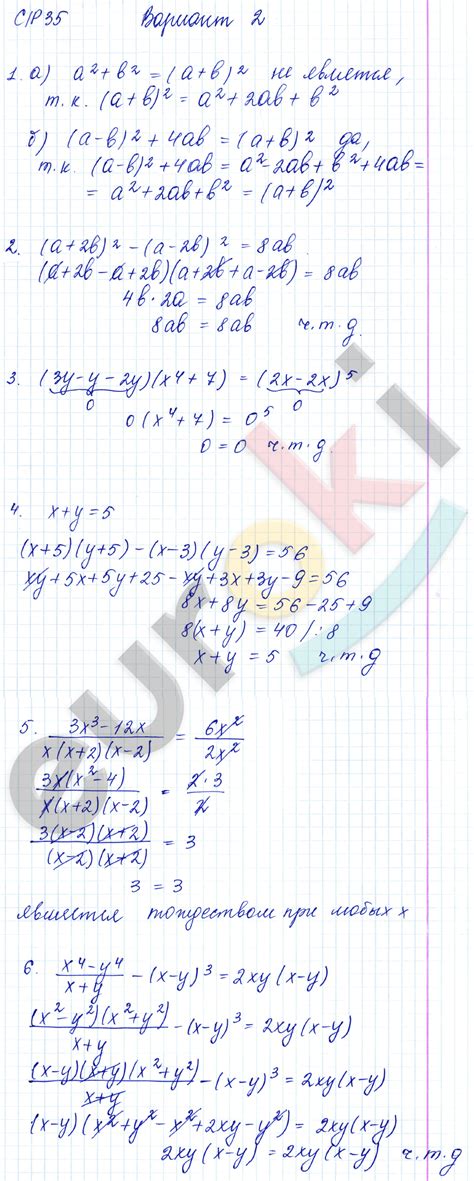 С/Р 35 Вариант 2
1. а) a²+b² = (a+b)² не является,
т.к. (a+b)² = a²+2ab+b²
б) (a-b)²+4ab = (a+b)² да,
т.к. (a-b)²+4ab = a²-2ab+b²+4ab=
= a²+2ab+b² = (a+b)²
2. (a+2b)² - (a-2b)² = 8ab
(a+2b-a+2b)(a+2b+a-2b) = 8ab
4b·2a = 8ab
8ab = 8ab ч.т.д.
3. (3y-y-2y)(x⁴+7) = (2x-2x)⁵
0 0
0(x⁴+7) = 0⁵
0=0 ч.т.д.
4. x+y=5
(x+5)(y+5)-(x-3)(y-3)=56
xy+5x+5y+25-xy+3x+3y-9=56
8x+8y=56-25+9
8(x+y)=40 /:8
x+y=5 ч.т.д
5. (3x³-12x)/(x(x+2)(x-2)) = 6x²/2x²
3x(x²-4)/(x(x+2)(x-2)) = 2·3/2
3(x-2)(x+2)/((x-2)(x+2)) = 3
3=3
является тождеством при любых x
6. (x⁴-y⁴)/(x+y) - (x-y)³ = 2xy(x-y)
(x²-y²)(x²+y²)/(x+y) - (x-y)³ = 2xy(x-y)
(x-y)(x+y)(x²+y²)/(x+y) - (x-y)³ = 2xy(x-y)
(x-y)(x²+y²-x²+2xy-y²) = 2xy(x-y)
2xy(x-y) = 2xy(x-y) ч.т.д
euroki